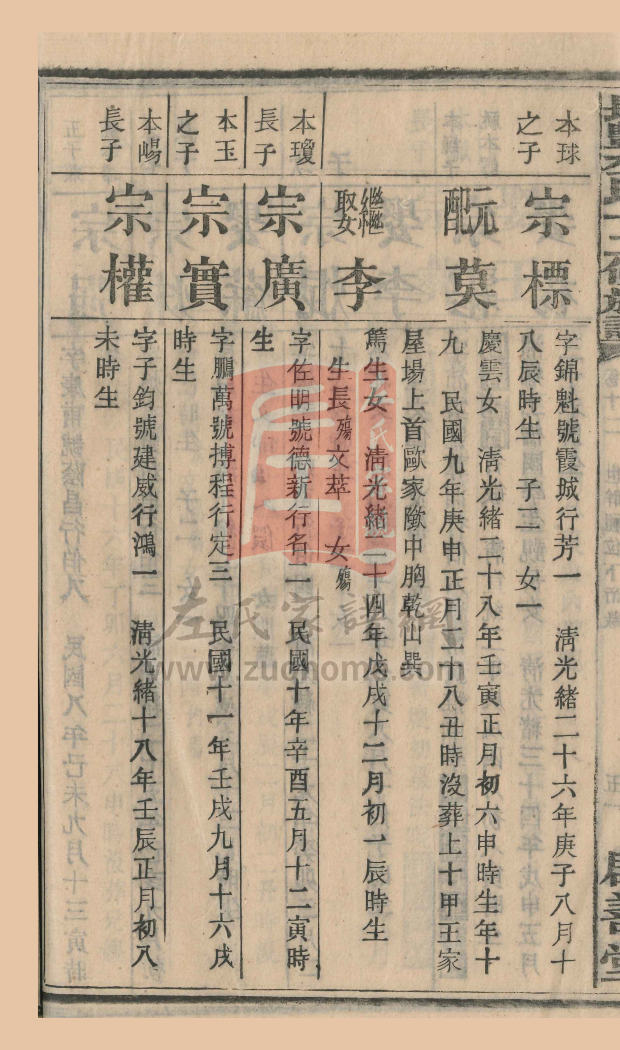 本球
之子
宗標
字錦魁號霞城行芳一　清光緒二十六年庚子八月十
八辰時生　子三　女一
元配莫
慶雲女　清光緒二十八年壬寅正月初六申時生年十
九　民國九年庚申正月二十八丑時沒葬上十甲王家
屋場上首歐家墩中胸乾山巽
繼娶李
篤生女　清光緒二十四年戊戌十二月初一辰時生
生長殤文萃　女殤
本瓊
長子
宗廣
字佐明號德新行名二　民國十年辛酉五月十二寅時
生
本玉
之子
宗實
字鵬萬號摶程行定三　民國十一年壬戌九月十六戌
時生
本崵
長子
宗權
字子鈞號建威行鴻一　清光緒十八年壬辰正月初八
未時生
左氏家譜網
www.zuohome.com